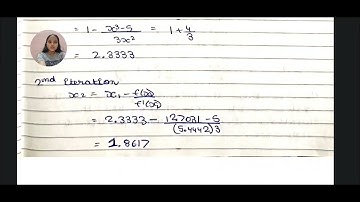 = 1 - x³-5 / 3x² = 1 + 4/3
= 2.3333
2nd Iteration
x₂ = x₁ - f(x₁) / f'(x₁)
= 2.3333 - 127031 - 5 / (5.4442)3
= 1.8617